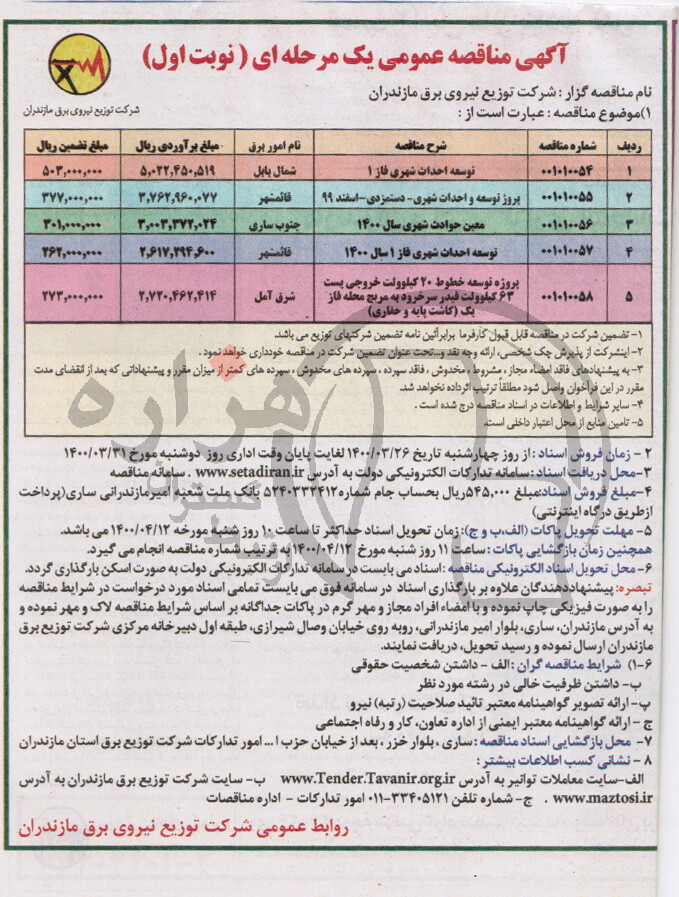 آگهی مناقصه عمومی یک مرحله ای ( نوبت اول)
شرکت توزیع نیروی برق مازندران
نام مناقصه گزار : شرکت توزیع نیروی برق مازندران
۱)موضوع مناقصه : عبارت است از :
ردیف شماره مناقصه شرح مناقصه نام امور برق مبلغ برآوردی ریال مبلغ تضمین ریال
۱ ۰۰۱۰۱۰۰۵۴ توسعه احداث شهری فاز ۱ شمال بابل ۵,۰۲۲,۴۵۰,۵۱۹ ۵۰۳,۰۰۰,۰۰۰
۲ ۰۰۱۰۱۰۰۵۵ پروژ توسعه و احداث شهری- دستمزدی-اسفند ۹۹ قائمشهر ۳,۷۶۲,۹۶۰,۰۷۷ ۳۷۷,۰۰۰,۰۰۰
۳ ۰۰۱۰۱۰۰۵۶ معین حوادث شهری سال ۱۴۰۰ جنوب ساری ۳,۰۰۳,۳۷۲,۰۲۴ ۳۰۱,۰۰۰,۰۰۰
۴ ۰۰۱۰۱۰۰۵۷ توسعه احداث شهری فاز ۱ سال ۱۴۰۰ قائمشهر ۲,۶۱۷,۲۹۴,۶۰۰ ۲۶۲,۰۰۰,۰۰۰
۵ ۰۰۱۰۱۰۰۵۸ پروژه توسعه خطوط ۲۰ کیلوولت خروجی پست
۶۳ کیلوولت فیدر سرخرود به مریج محله فاز
یک (کاشت پایه و حفاری) شرق آمل ۲,۷۲۰,۴۶۲,۴۱۴ ۲۷۳,۰۰۰,۰۰۰
۱- تضمین شرکت در مناقصه قابل قبول کارفرما برابر آئین نامه تضمین شرکتهای توزیع می باشد.
۲- اینشرکت از پذیرش چک شخصی، ارائه وجه نقد و...تحت عنوان تضمین شرکت در مناقصه خودداری خواهد نمود .
۳- به پیشنهادهای فاقد امضاء مجاز ، مشروط ، مخدوش ، فاقد سپرده ، سپرده های مخدوش ، سپرده های کمتر از میزان مقرر و پیشنهاداتی که بعد از انقضای مدت
مقرر در این فراخوان واصل شود مطلقاً ترتیب اثرداده نخواهد شد.
۴- سایر شرایط و اطلاعات در اسناد مناقصه درج شده است .
۵- تامین منابع از محل اعتبار داخلی است.
۲ - زمان فروش اسناد : از روز چهارشنبه تاریخ ۱۴۰۰/۰۳/۲۶ لغایت پایان وقت اداری روز دوشنبه مورخ ۱۴۰۰/۰۳/۳۱
۳-محل دریافت اسناد : سامانه تدارکات الکترونیکی دولت به آدرس www.setadiran.ir . سامانه مناقصه
۴-مبلغ فروش اسناد:مبلغ ۵۴۵,۰۰۰ریال بحساب جام شماره۵۲۴۰۳۳۲۴۱۲ بانک ملت شعبه امیرمازندرانی ساری(پرداخت
ازطریق درگاه اینترنتی)
۵- مهلت تحویل پاکات (الف،ب و ج): زمان تحویل اسناد حداکثر تا ساعت ۱۰ روز شنبه مورخه ۱۴۰۰/۰۴/۱۲ می باشد.
همچنین زمان بازگشایی پاکات : ساعت ۱۱ روز شنبه مورخ ۱۴۰۰/۰۴/۱۲ به ترتیب شماره مناقصه انجام می گیرد.
۶- محل تحویل اسناد الکترونیکی مناقصه : اسناد می بایست در سامانه تدارکات الکترونیکی دولت به صورت اسکن بارگذاری گردد.
تبصره: پیشنهاددهندگان علاوه بر بارگذاری اسناد در سامانه فوق می بایست تمامی اسناد مورد درخواست در شرایط مناقصه
را به صورت فیزیکی چاپ نموده و با امضاء افراد مجاز و مهر گرم در پاکات جداگانه بر اساس شرایط مناقصه لاک و مهر نموده و
به آدرس مازندران، ساری، بلوار امیر مازندرانی، روبه روی خیابان وصال شیرازی، طبقه اول دبیرخانه مرکزی شرکت توزیع برق
مازندران ارسال نموده و رسید تحویل، دریافت نمایند.
۶-۱) شرایط مناقصه گران : الف - داشتن شخصیت حقوقی
ب- داشتن ظرفیت خالی در رشته مورد نظر
پ- ارائه تصویر گواهینامه معتبر تائید صلاحیت (رتبه) نیرو
ج - ارائه گواهینامه معتبر ایمنی از اداره تعاون، کار و رفاه اجتماعی
۷- محل بازگشایی اسناد مناقصه : ساری ، بلوار خزر ، بعد از خیابان حزب ا... امور تدارکات شرکت توزیع برق استان مازندران
۸ - نشانی کسب اطلاعات بیشتر :
الف-سایت معاملات توانیر به آدرس www.Tender.Tavanir.org.ir ب- سایت شرکت توزیع برق مازندران به آدرس
www.maztosi.ir . ج- شماره تلفن ۳۳۴۰۵۱۲۱-۰۱۱ امور تدارکات - اداره مناقصات
روابط عمومی شرکت توزیع نیروی برق مازندران
هزاره